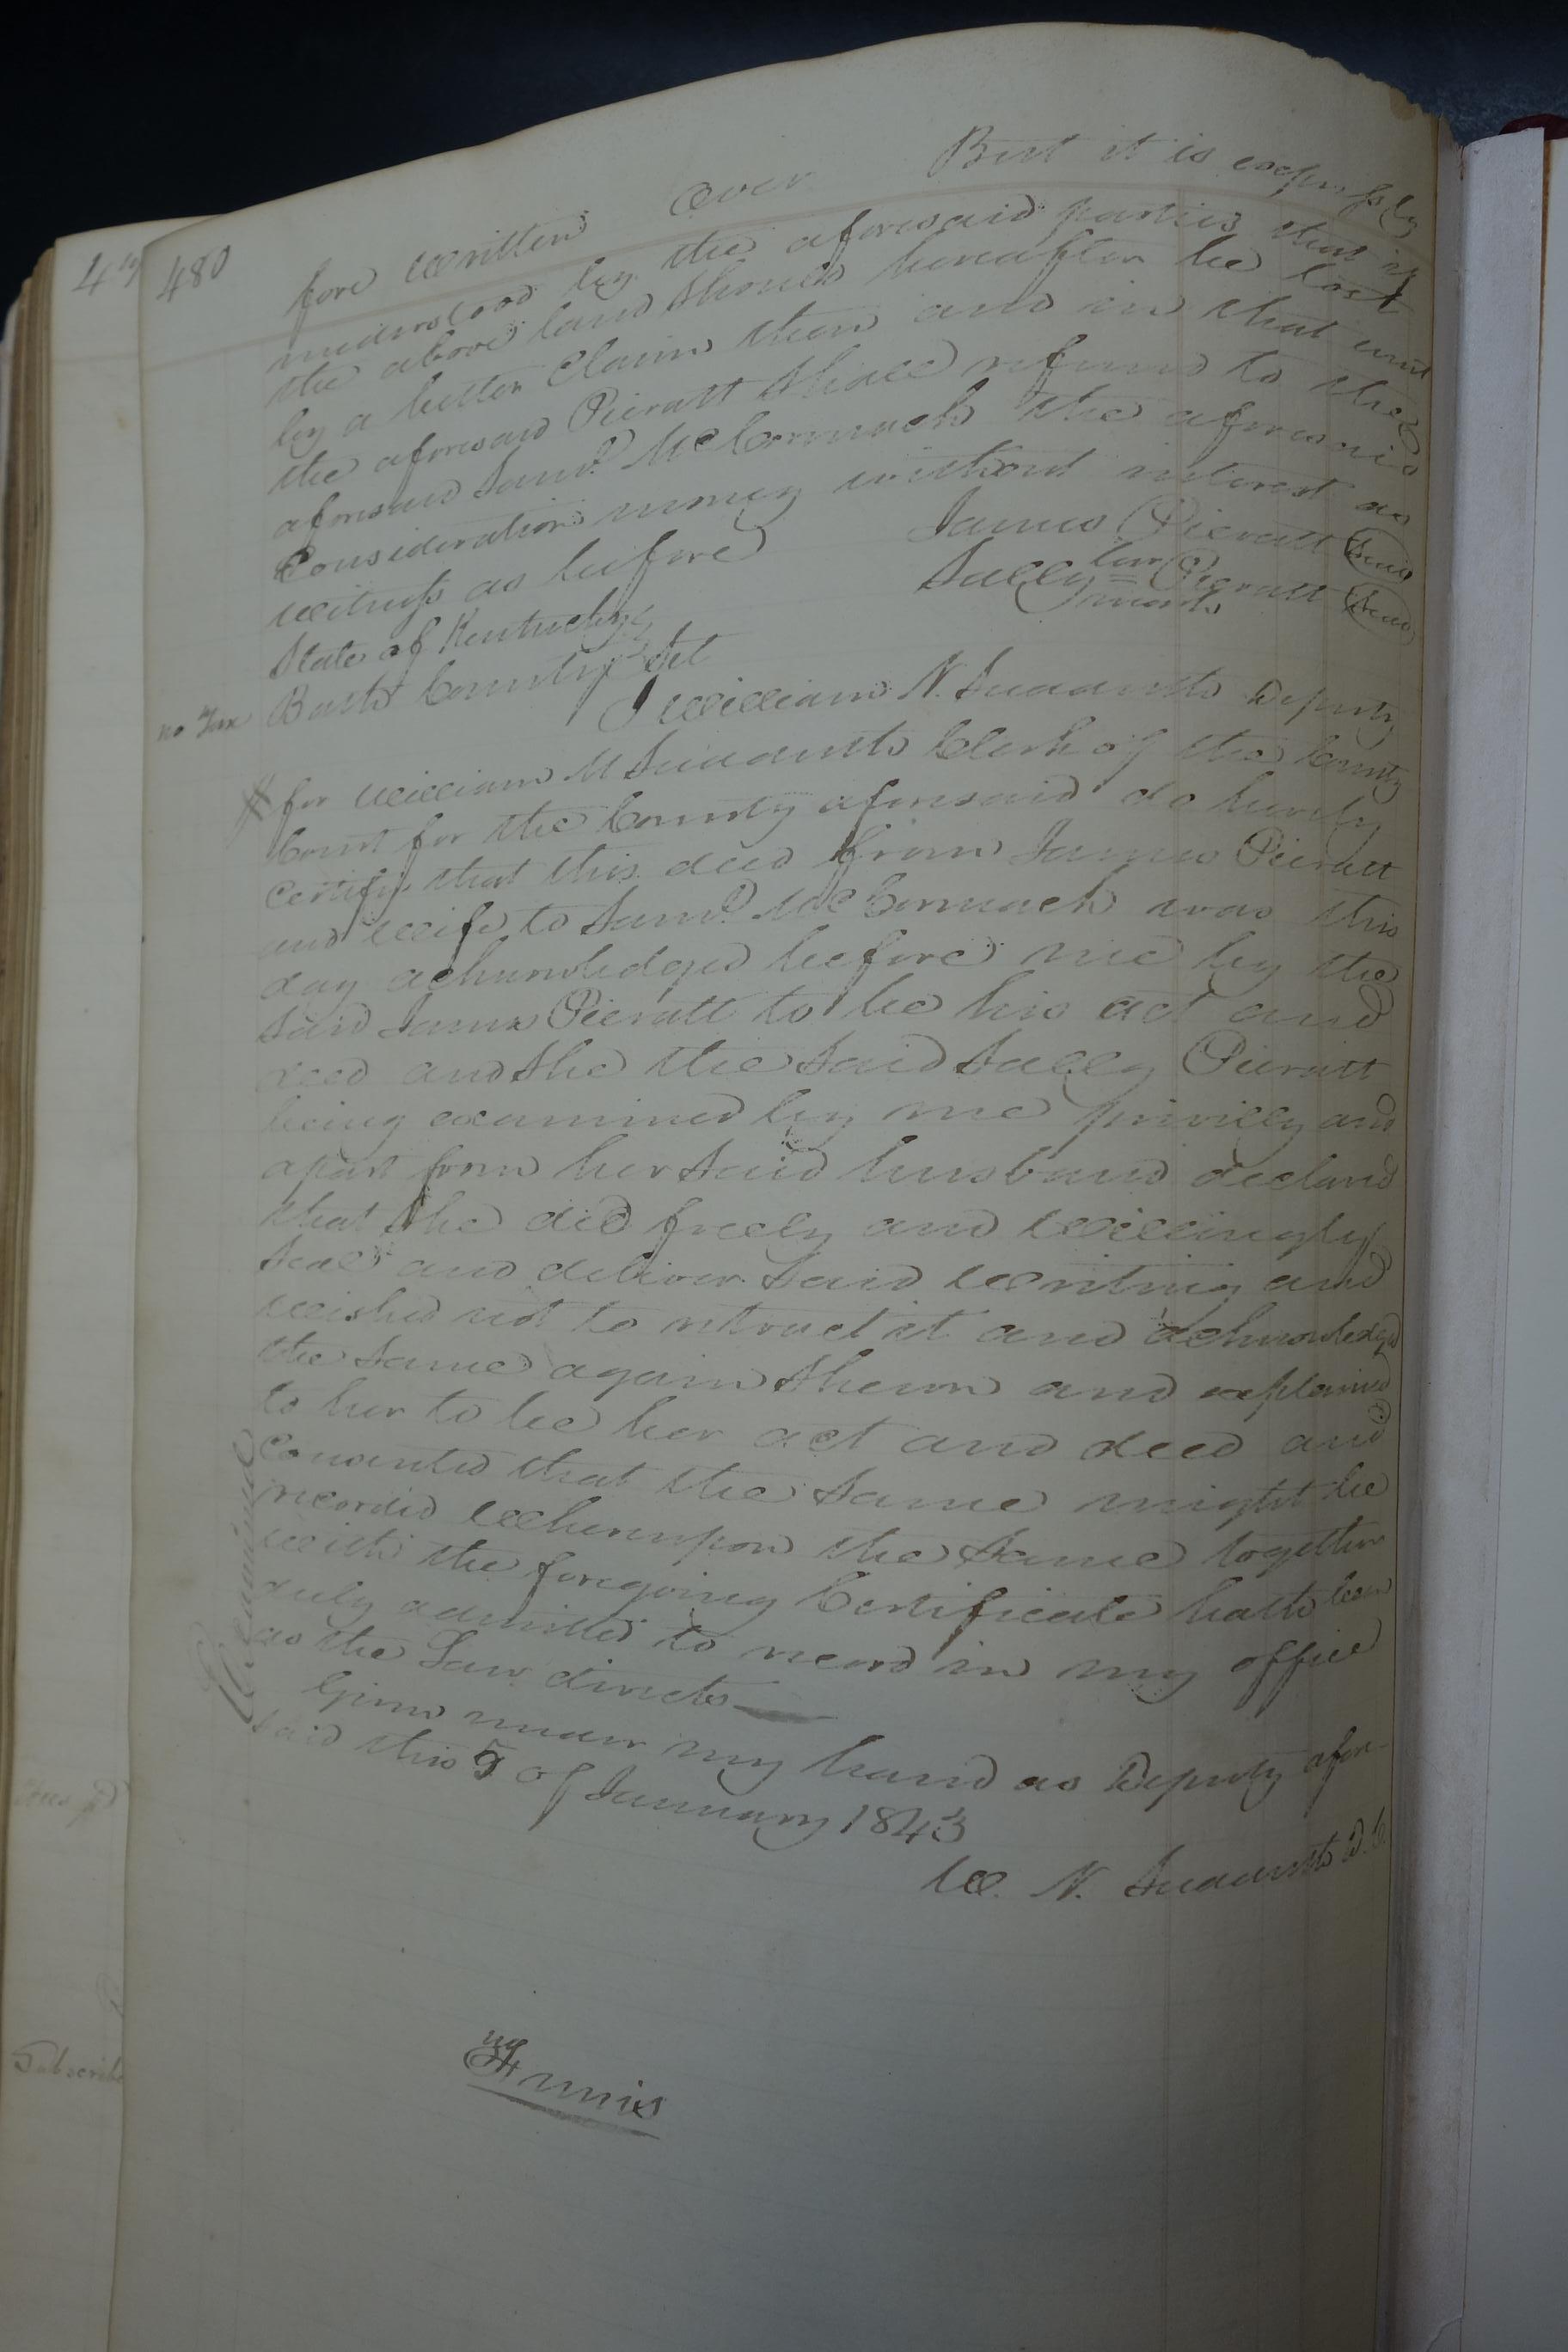 480
fore written over But it is expressly
understood by the aforesaid parties that if
the above land should hereafter be lost
by a better Claim then and in that event
the aforesaid Pieratt shall refund to the
aforesaid Saml McCormack the aforesaid
Consideration money without interest as
witness as before James Pieratt Seal
Sally her = mark Pieratt Seal
State of Kentucky
Bath County Sct
no Tax
I William N. Sudduth Deputy
for William M Sudduth Clerk of the County
Court for the County aforesaid do hereby
Certify that this deed from James Pieratt
and wife to Saml McCormack was this
day acknowledged before me by the
said James Pieratt to be his act and
deed and She the Said Sally Pieratt
being examined by me privily and
apart from her Said husband declared
that She did freely and willingly
Seal and deliver Said writing and
wished not to retract it and acknowledged
the Same again Shewn and explained
to her to be her act and deed and
Consented that the Same might be
recorded Whereupon the Same together
with the foregoing Certificate hath been
duly admitted to record in my office
as the Law directs
Given under my hand as Deputy afore-
said this 5 of January 1843
W. N. Sudduth D.C.
Examined
Subscribe